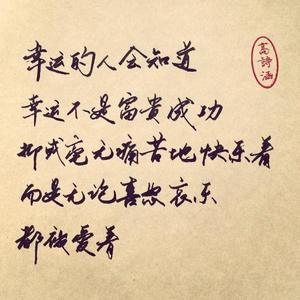 幸运的人会知道
幸运不是富貴成功
抑或毫无痛苦地快乐着
而是无论喜怒哀乐
都被愛着
葛詩涵